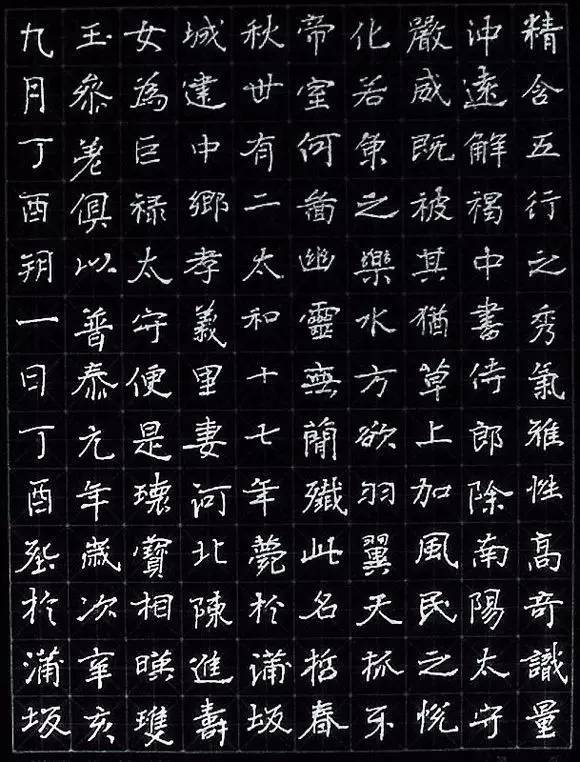 精含五行之秀氣雅性高奇識量
沖遠解褐中書侍郎除南陽太守
嚴威既被其猶草上加風民之悅
化若魚之樂水方欲羽翼天抓牙
帝室何啚幽靈無簡殲此名哲春
秋世有二太和十七年薨於蒲坂
城建中鄉孝義里妻河北陳進壽
女為巨祿太守便是瓌寶相暎瓊
玉參差俱以普泰元年歲次辛亥
九月丁酉朔一日丁酉葬於蒲坂